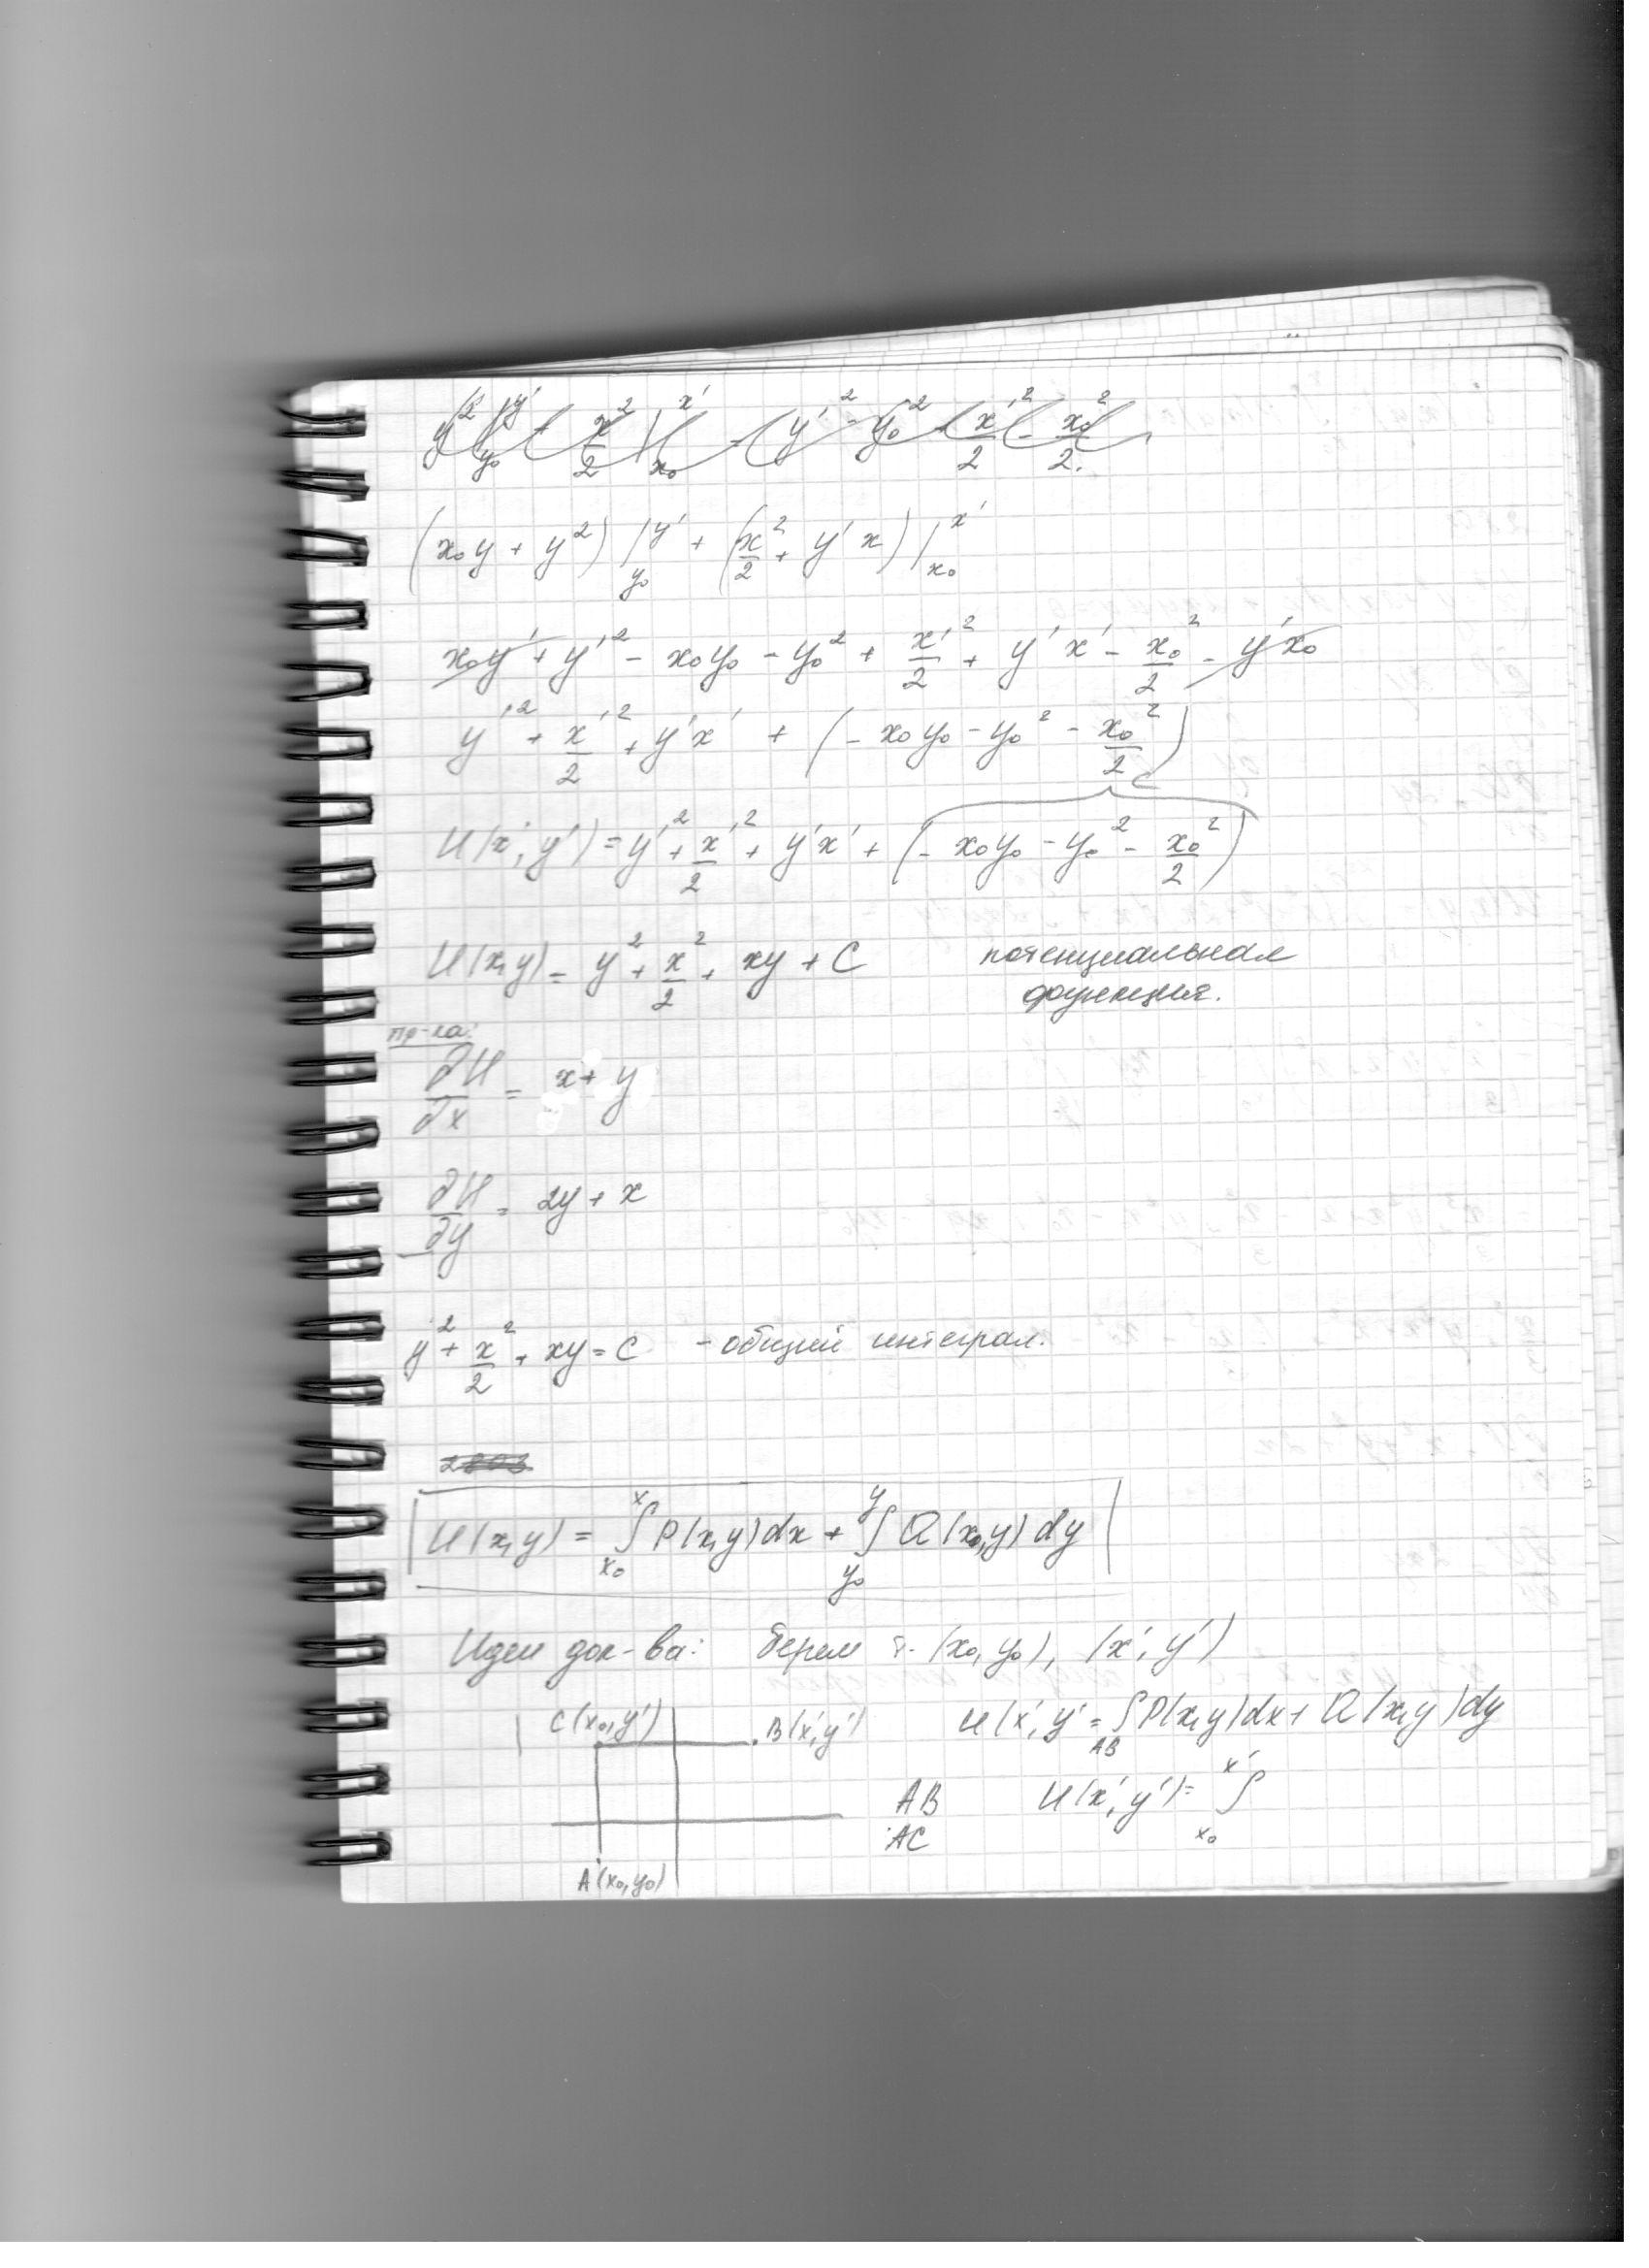 (x₀y + y²)|y₀^y' + (x²/2 + y'x)|x₀^x'
x₀y' + y'² - x₀y₀ - y₀² + x'²/2 + y'x' - x₀²/2 - y'x₀
y'² + x'²/2 + y'x' + (- x₀y₀ - y₀² - x₀²/2)
C
U(x', y') = y'² + x'²/2 + y'x' + (- x₀y₀ - y₀² - x₀²/2)
U(x,y) = y² + x²/2 + xy + C потенциальная
функция.
пр-ка:
∂U/∂x = x + y
∂U/∂y = 2y + x
y² + x²/2 + xy = C - общий интеграл.
U(x,y) = ∫x₀^x P(x,y)dx + ∫y₀^y Q(x₀,y)dy
Идеи док-ва: берем т. (x₀, y₀), (x', y')
C(x₀,y') B(x',y') U(x', y' = ∫AB P(x,y)dx + Q(x,y)dy
AB U(x', y') = ∫x₀^x'
AC
A(x₀,y₀)